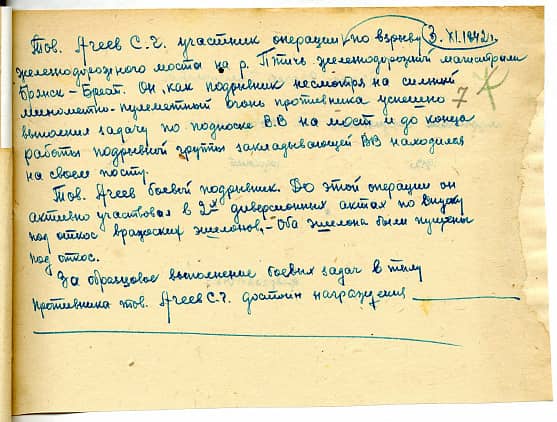 Тов. Агеев С.Г. участник операции по взрыву 3.XI.1942 г.
железнодорожного моста на р. Птичь железнодорожной магистрали
Брянск – Брест. Он, как подрывник несмотря на сильный
минометно-пулеметный огонь противника успешно
7
выполнил задачу по подноске ВВ на мост и до конца
работы подрывной группы закладывающей ВВ находился
на своем посту.
Тов. Агеев боевой подрывник. До этой операции он
активно участвовал в 2х диверсионных актах по спуску
под откос вражеских эшелонов. – Оба эшелона были пущены
под откос.
За образцовое выполнение боевых задач в тылу
противника тов. Агеев С.Г. достоин награждения